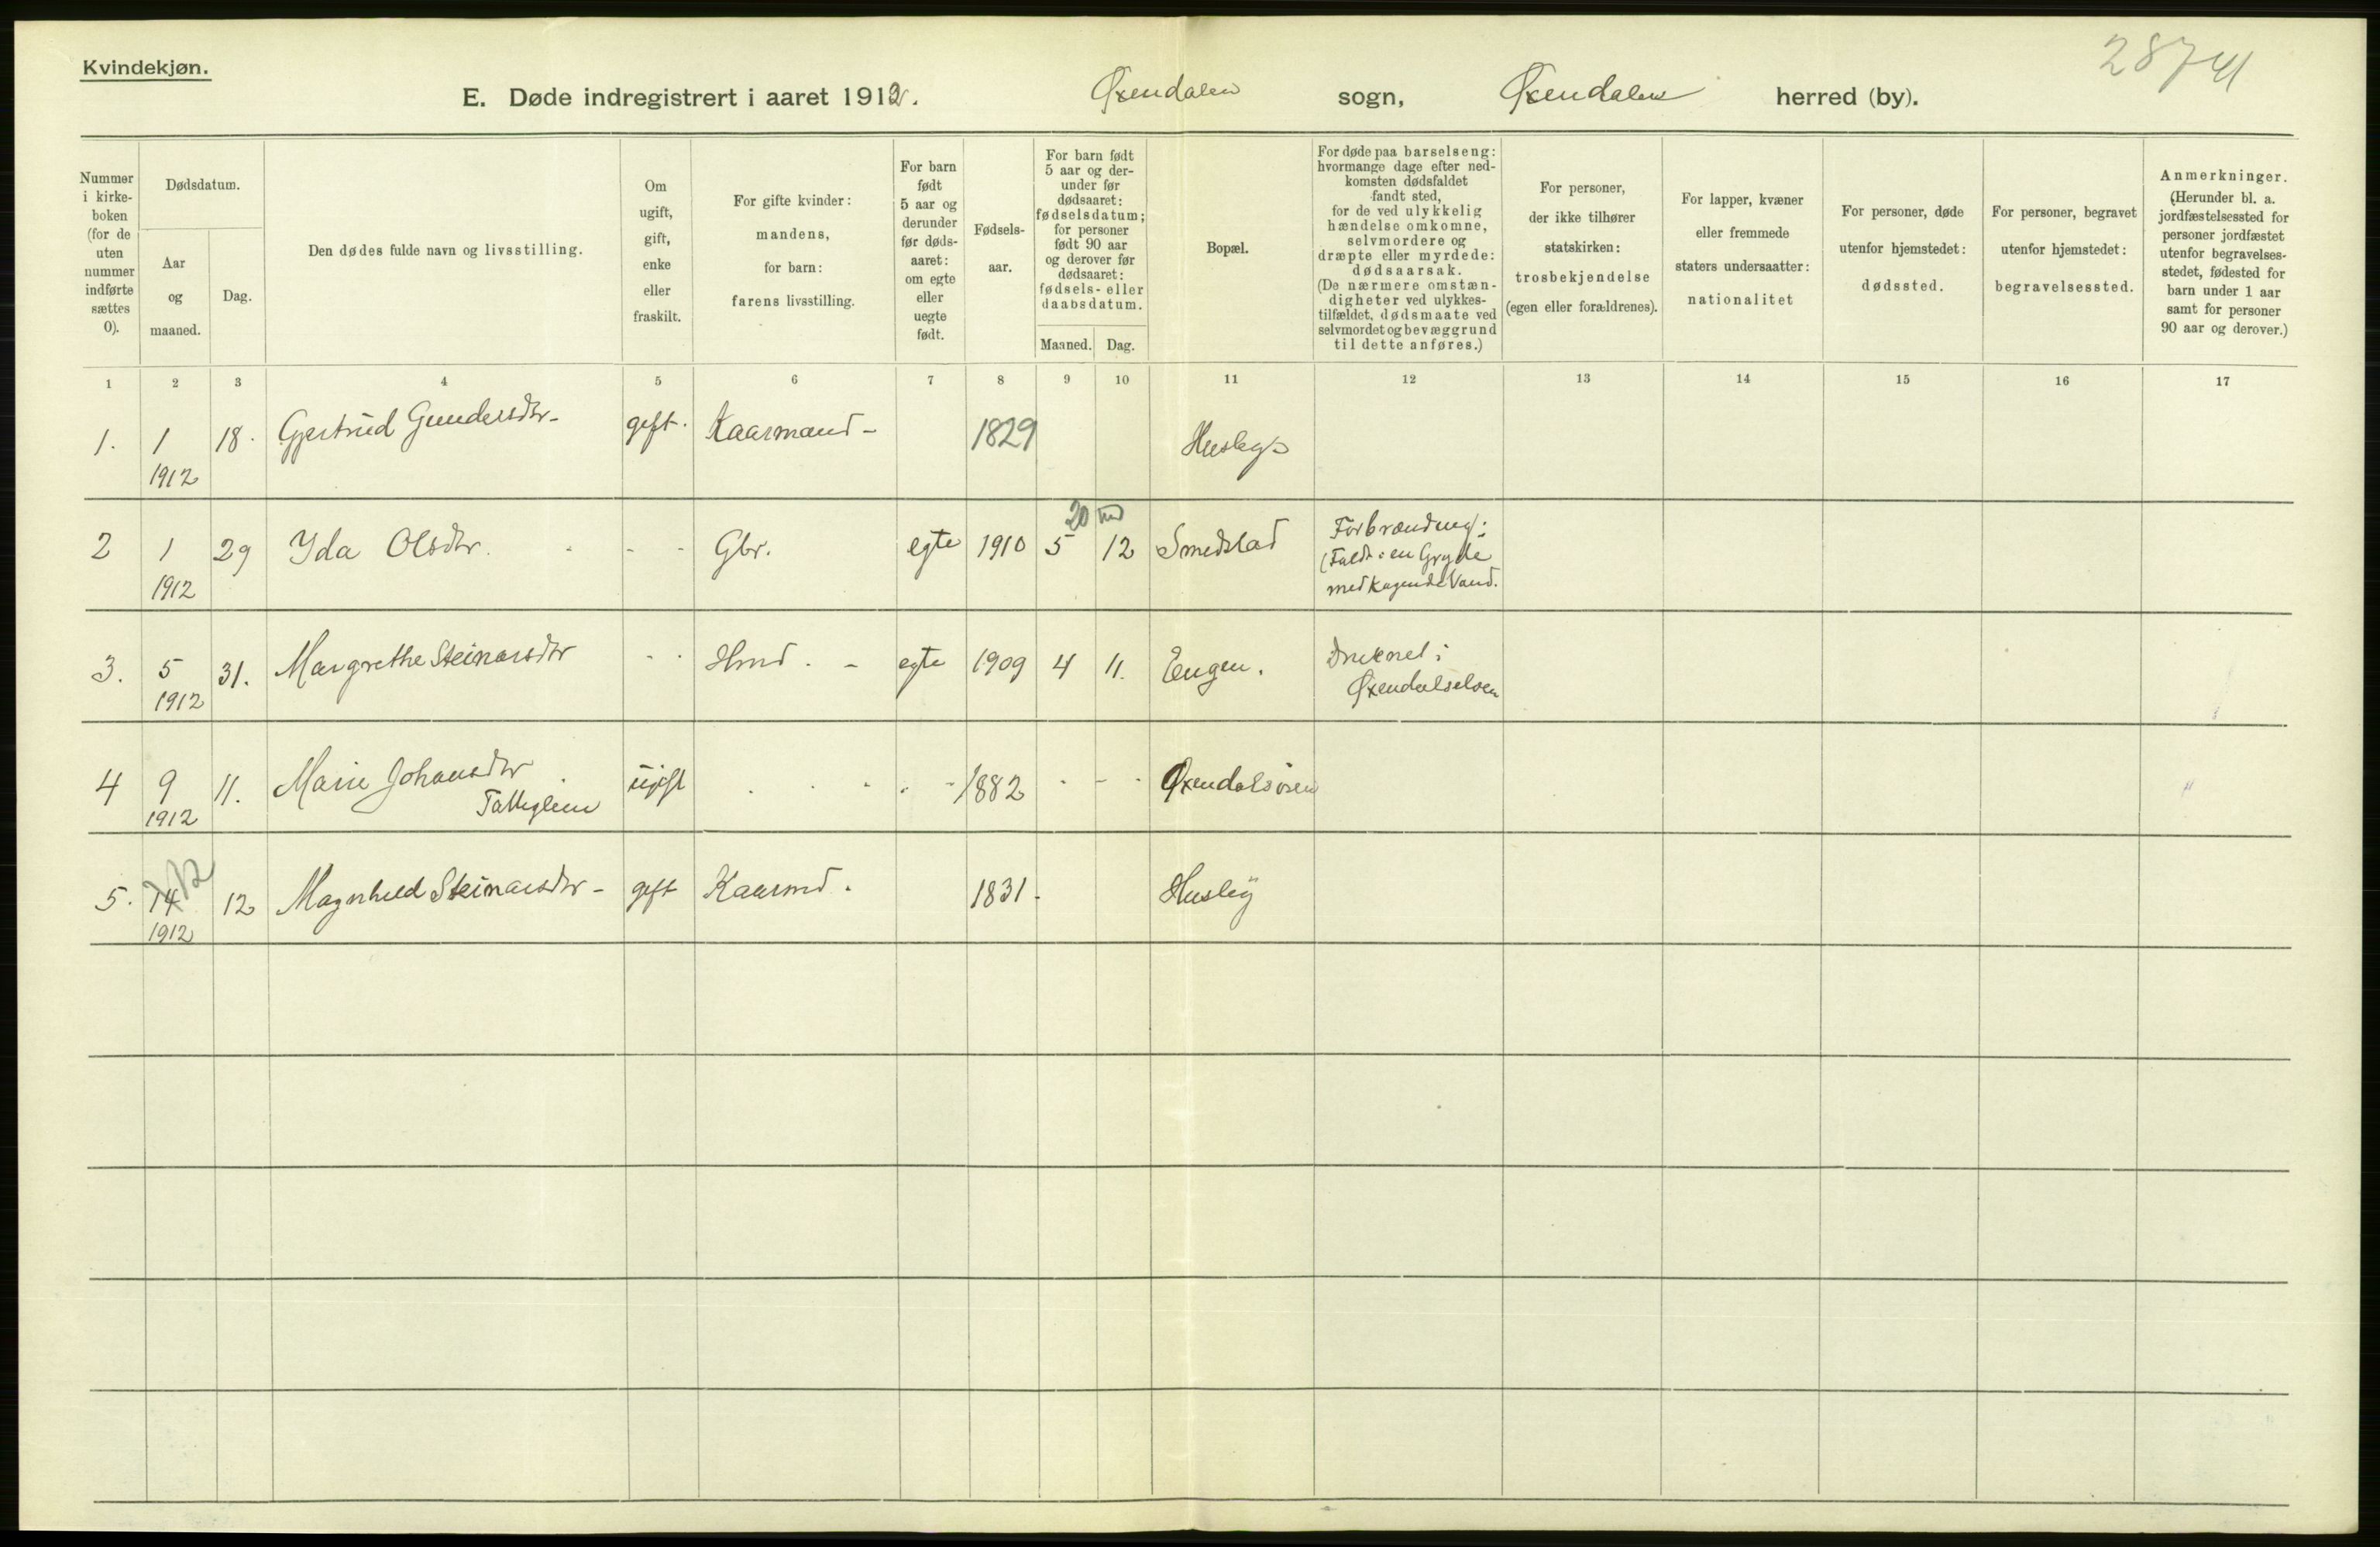 Kvindekjøn.
28741
E. Døde indregistrert i aaret 1912. Øxendalen sogn, Øxendalen herred (by).
Nummer i kirke- boken (for de uten nummer indførte sættes 0).
Dødsdatum.
Aar og maaned.
Dag.
Den dødes fulde navn og livsstilling.
Om ugift, gift, enke eller fraskilt.
For gifte kvinder: mandens, for barn: farens livsstilling.
For barn født 5 aar og derunder før døds- aaret: om egte eller uegte født.
Fødsels- aar.
For barn født 5 aar og der- under før dødsaaret: fødselsdatum; for personer født 90 aar og derover før dødsaaret: fødsels- eller daabsdatum.
Maaned. Dag.
Bopæl.
For døde paa barselseng: hvormange dage efter ned- komsten dødsfaldet fandt sted, for de ved ulykkelig hændelse omkomne, selvmordere og dræpte eller myrdede: dødsaarsak. (De nærmere omstæn- digheter ved ulykkes- tilfældet, dødsmaate ved selvmordet og bevæggrund til dette anføres.)
For personer, der ikke tilhører statskirken: trosbekjendelse (egen eller forældrenes).
For lapper, kvæner eller fremmede staters undersaatter: nationalitet
For personer, døde utenfor hjemstedet: dødssted.
For personer, begravet utenfor hjemstedet: begravelsessted.
Anmerkninger. (Herunder bl. a. jordfæstelsessted for personer jordfæstet utenfor begravelses- stedet, fødested for barn under 1 aar samt for personer 90 aar og derover.)
1 2 3 4 5 6 7 8 9 10 11 12 13 14 15 16 17
1. 1 18. Gjertrud Gundersdtr - gift. Kaarmand - 1829 Husby
1912
20
2 1 29 Yda Olsdtr. - - - Gbr. egte 1910 5 12 Smedstad Forbrænding:
(Faldt i en Gryde
1912 med kogende Vand.
3. 5 31. Margrethe Steinarsdtr - - Hmd. - egte 1909 4 11. Engen. Druknet i
1912 Øxendalselven
4 9 11. Marie Johansdtr ugift 1882 - - - Øxendalsøren
1912
12
5. 14 12 Magnhild Steinarsdtr - gift Kaarmd. 1831. Husby
1912